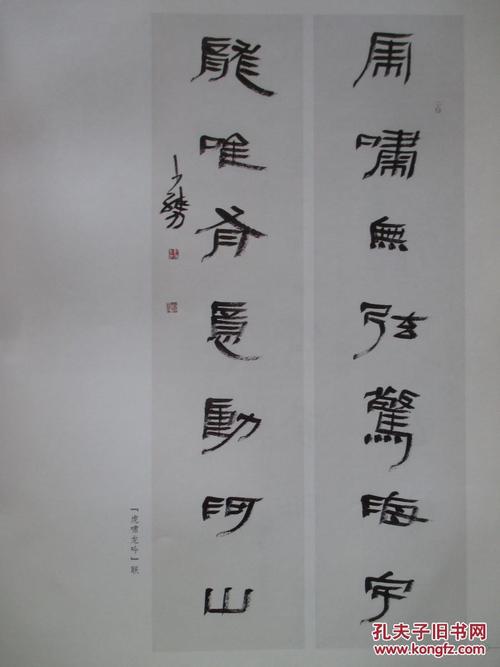 虎啸無弦驚海宇
龍唯有意動河山
「虎啸龙吟」联
孔夫子旧书网
www.kongfz.com